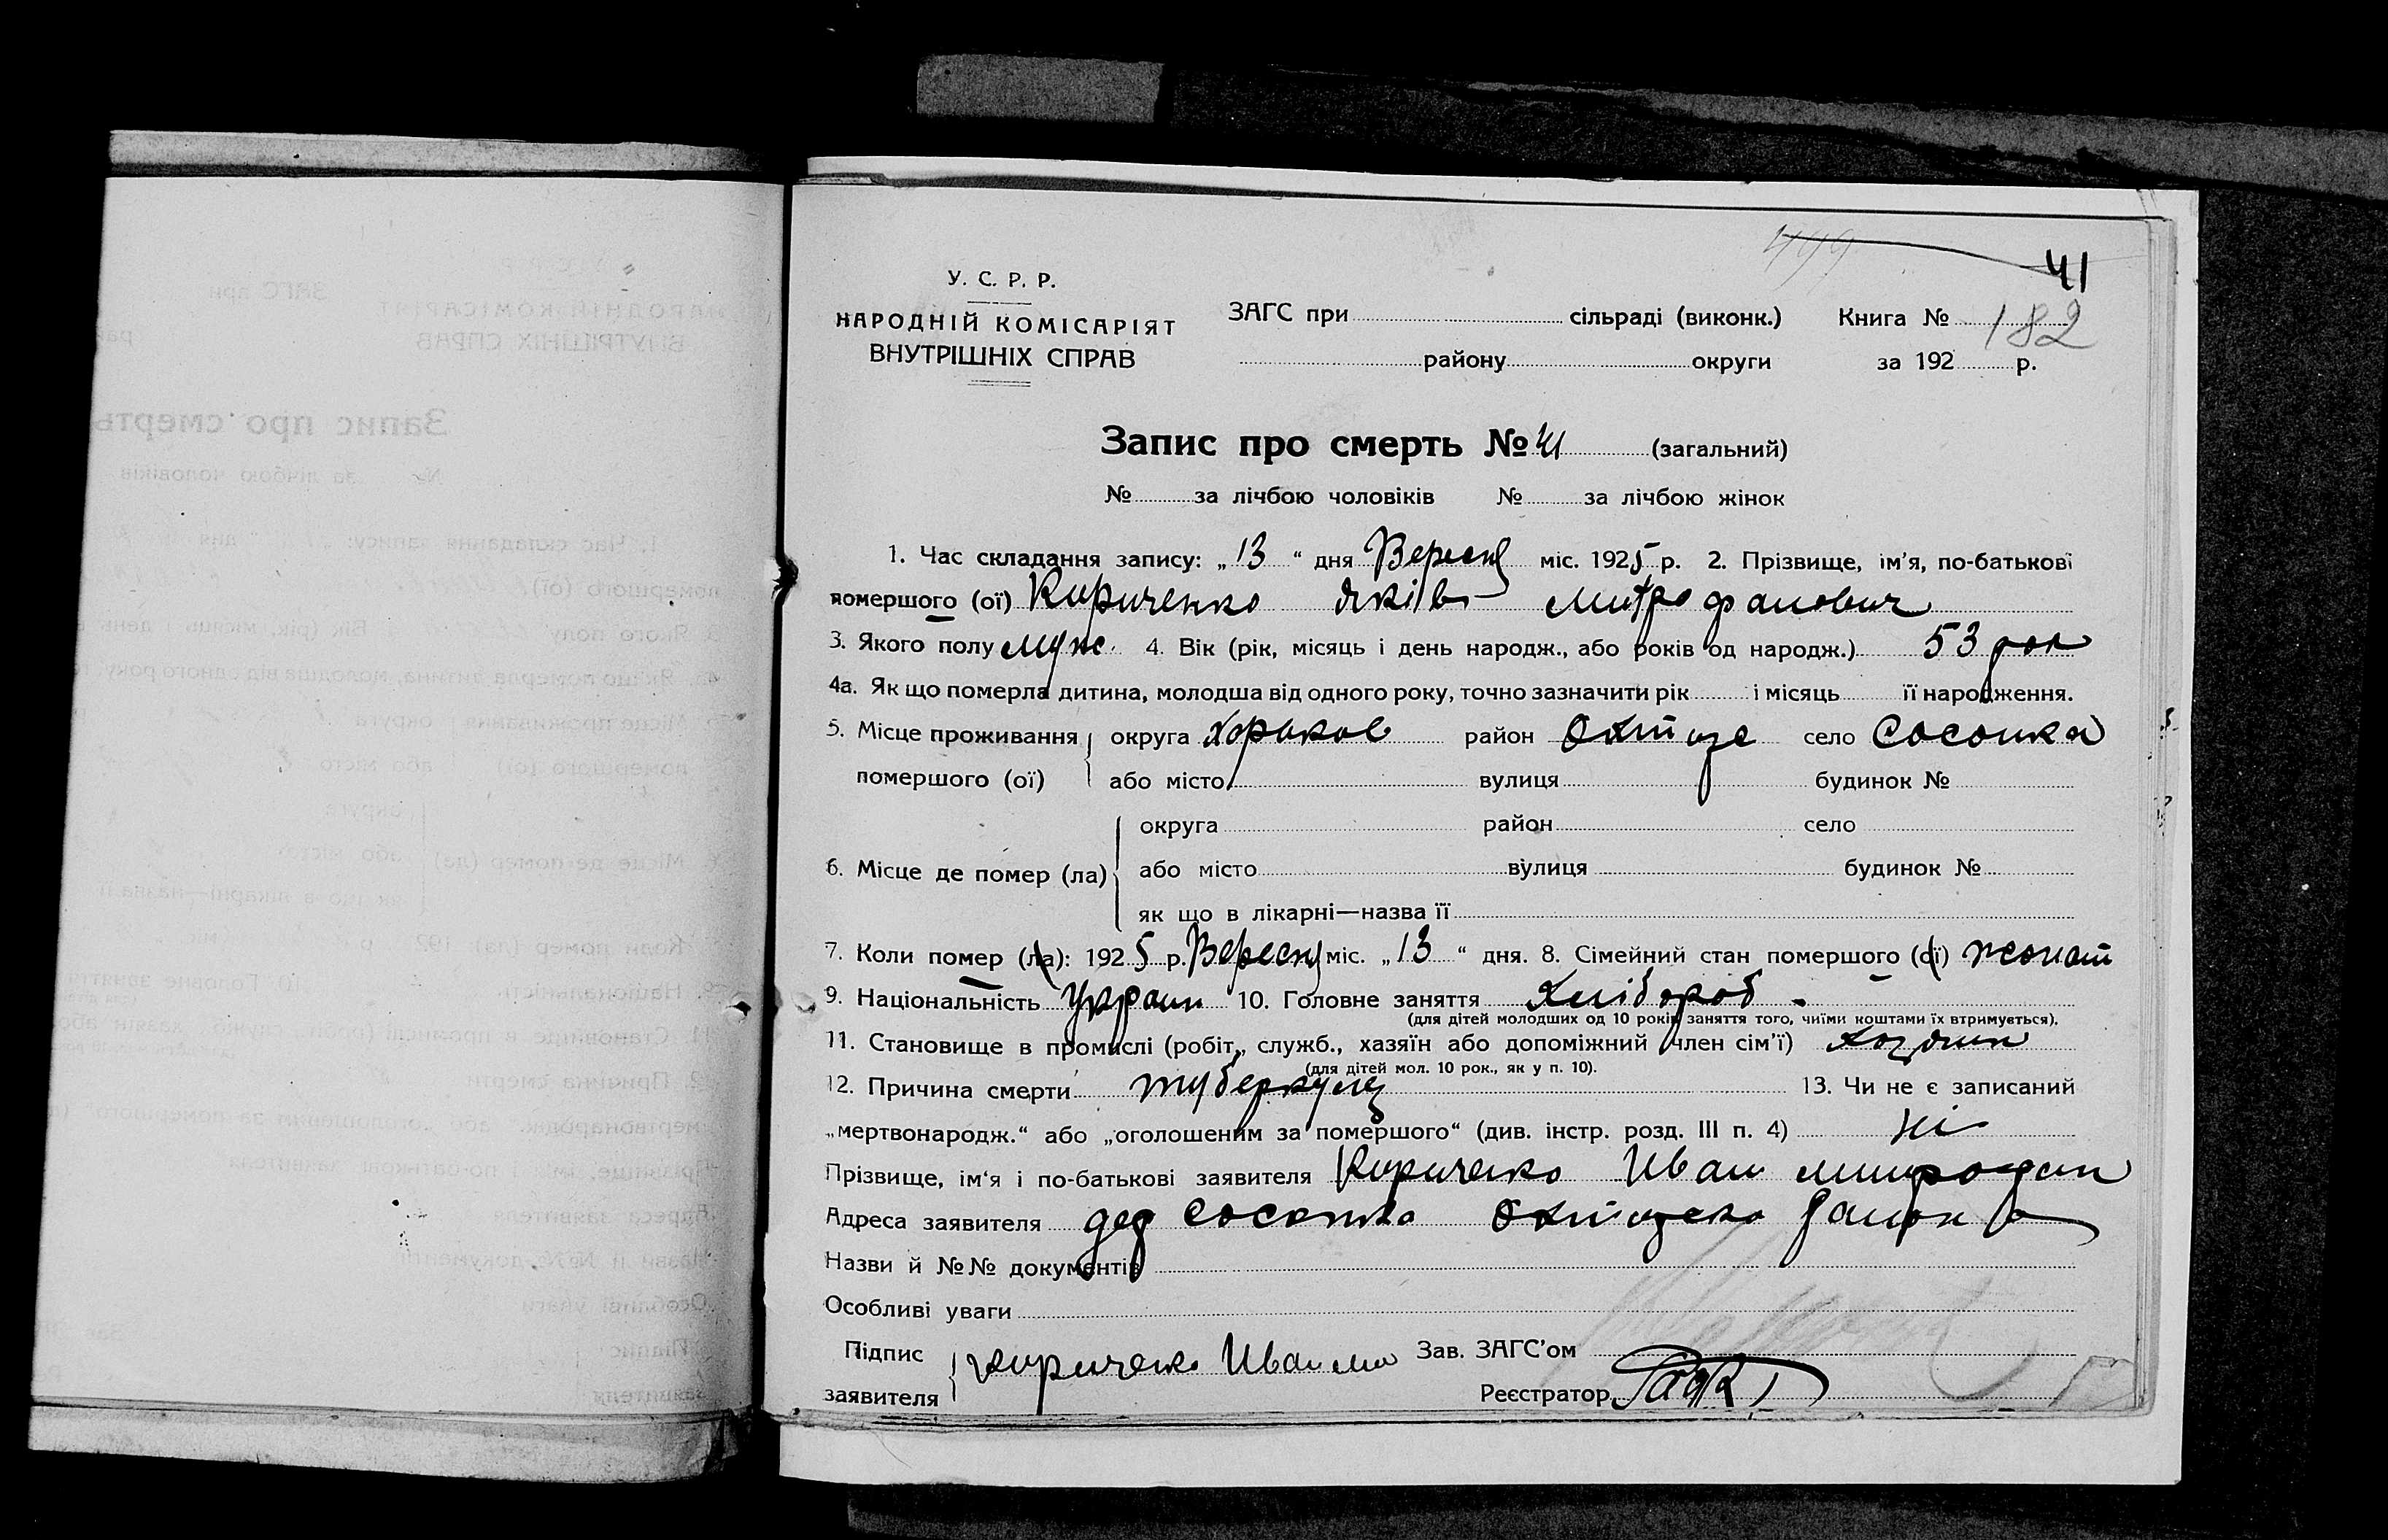 449 41
У. С. Р. Р.
НАРОДНІЙ КОМІСАРІЯТ
ВНУТРІШНІХ СПРАВ
ЗАГС при сільраді (виконк.) Книга № 182
району округи за 192 р.
Запис про смерть № 41 (загальний)
№ за лічбою чоловіків № за лічбою жінок
1. Час складання запису: „13“ дня Вересня міс. 1925 р. 2. Прізвище, ім'я, по-батькові
помершого (ої) Кириченко Яків Митрофанович
3. Якого полу муж. 4. Вік (рік, місяць і день народж., або років од народж.) 53 рок
4а. Як що померла дитина, молодша від одного року, точно зазначити рік і місяць її народження.
5. Місце проживання округа Харьков район село Сосонка
помершого (ої) або місто вулиця будинок №
округа район село
6. Місце де помер (ла) або місто вулиця будинок №
як що в лікарні—назва її
7. Коли помер (ла): 1925 р. Вересня міс. „13“ дня. 8. Сімейний стан помершого (ої) жонат
9. Національність Украин 10. Головне заняття Хлібороб
(для дітей молодших од 10 років заняття того, чиїми коштами їх втримується).
11. Становище в промислі (робіт., служб., хазяїн або допоміжний член сім'ї) Хазяин
(для дітей мол. 10 рок., як у п. 10).
12. Причина смерти туберкулез 13. Чи не є записаний
„мертвонародж.“ або „оголошеним за помершого“ (див. інстр. розд. III п. 4) ні
Прізвище, ім'я і по-батькові заявителя Кириченко Иван
Адреса заявителя дер Сосонка
Назви й №№ документів
Особливі уваги
Підпис Кириченко Иван Зав. ЗАГС'ом
заявителя Реєстратор